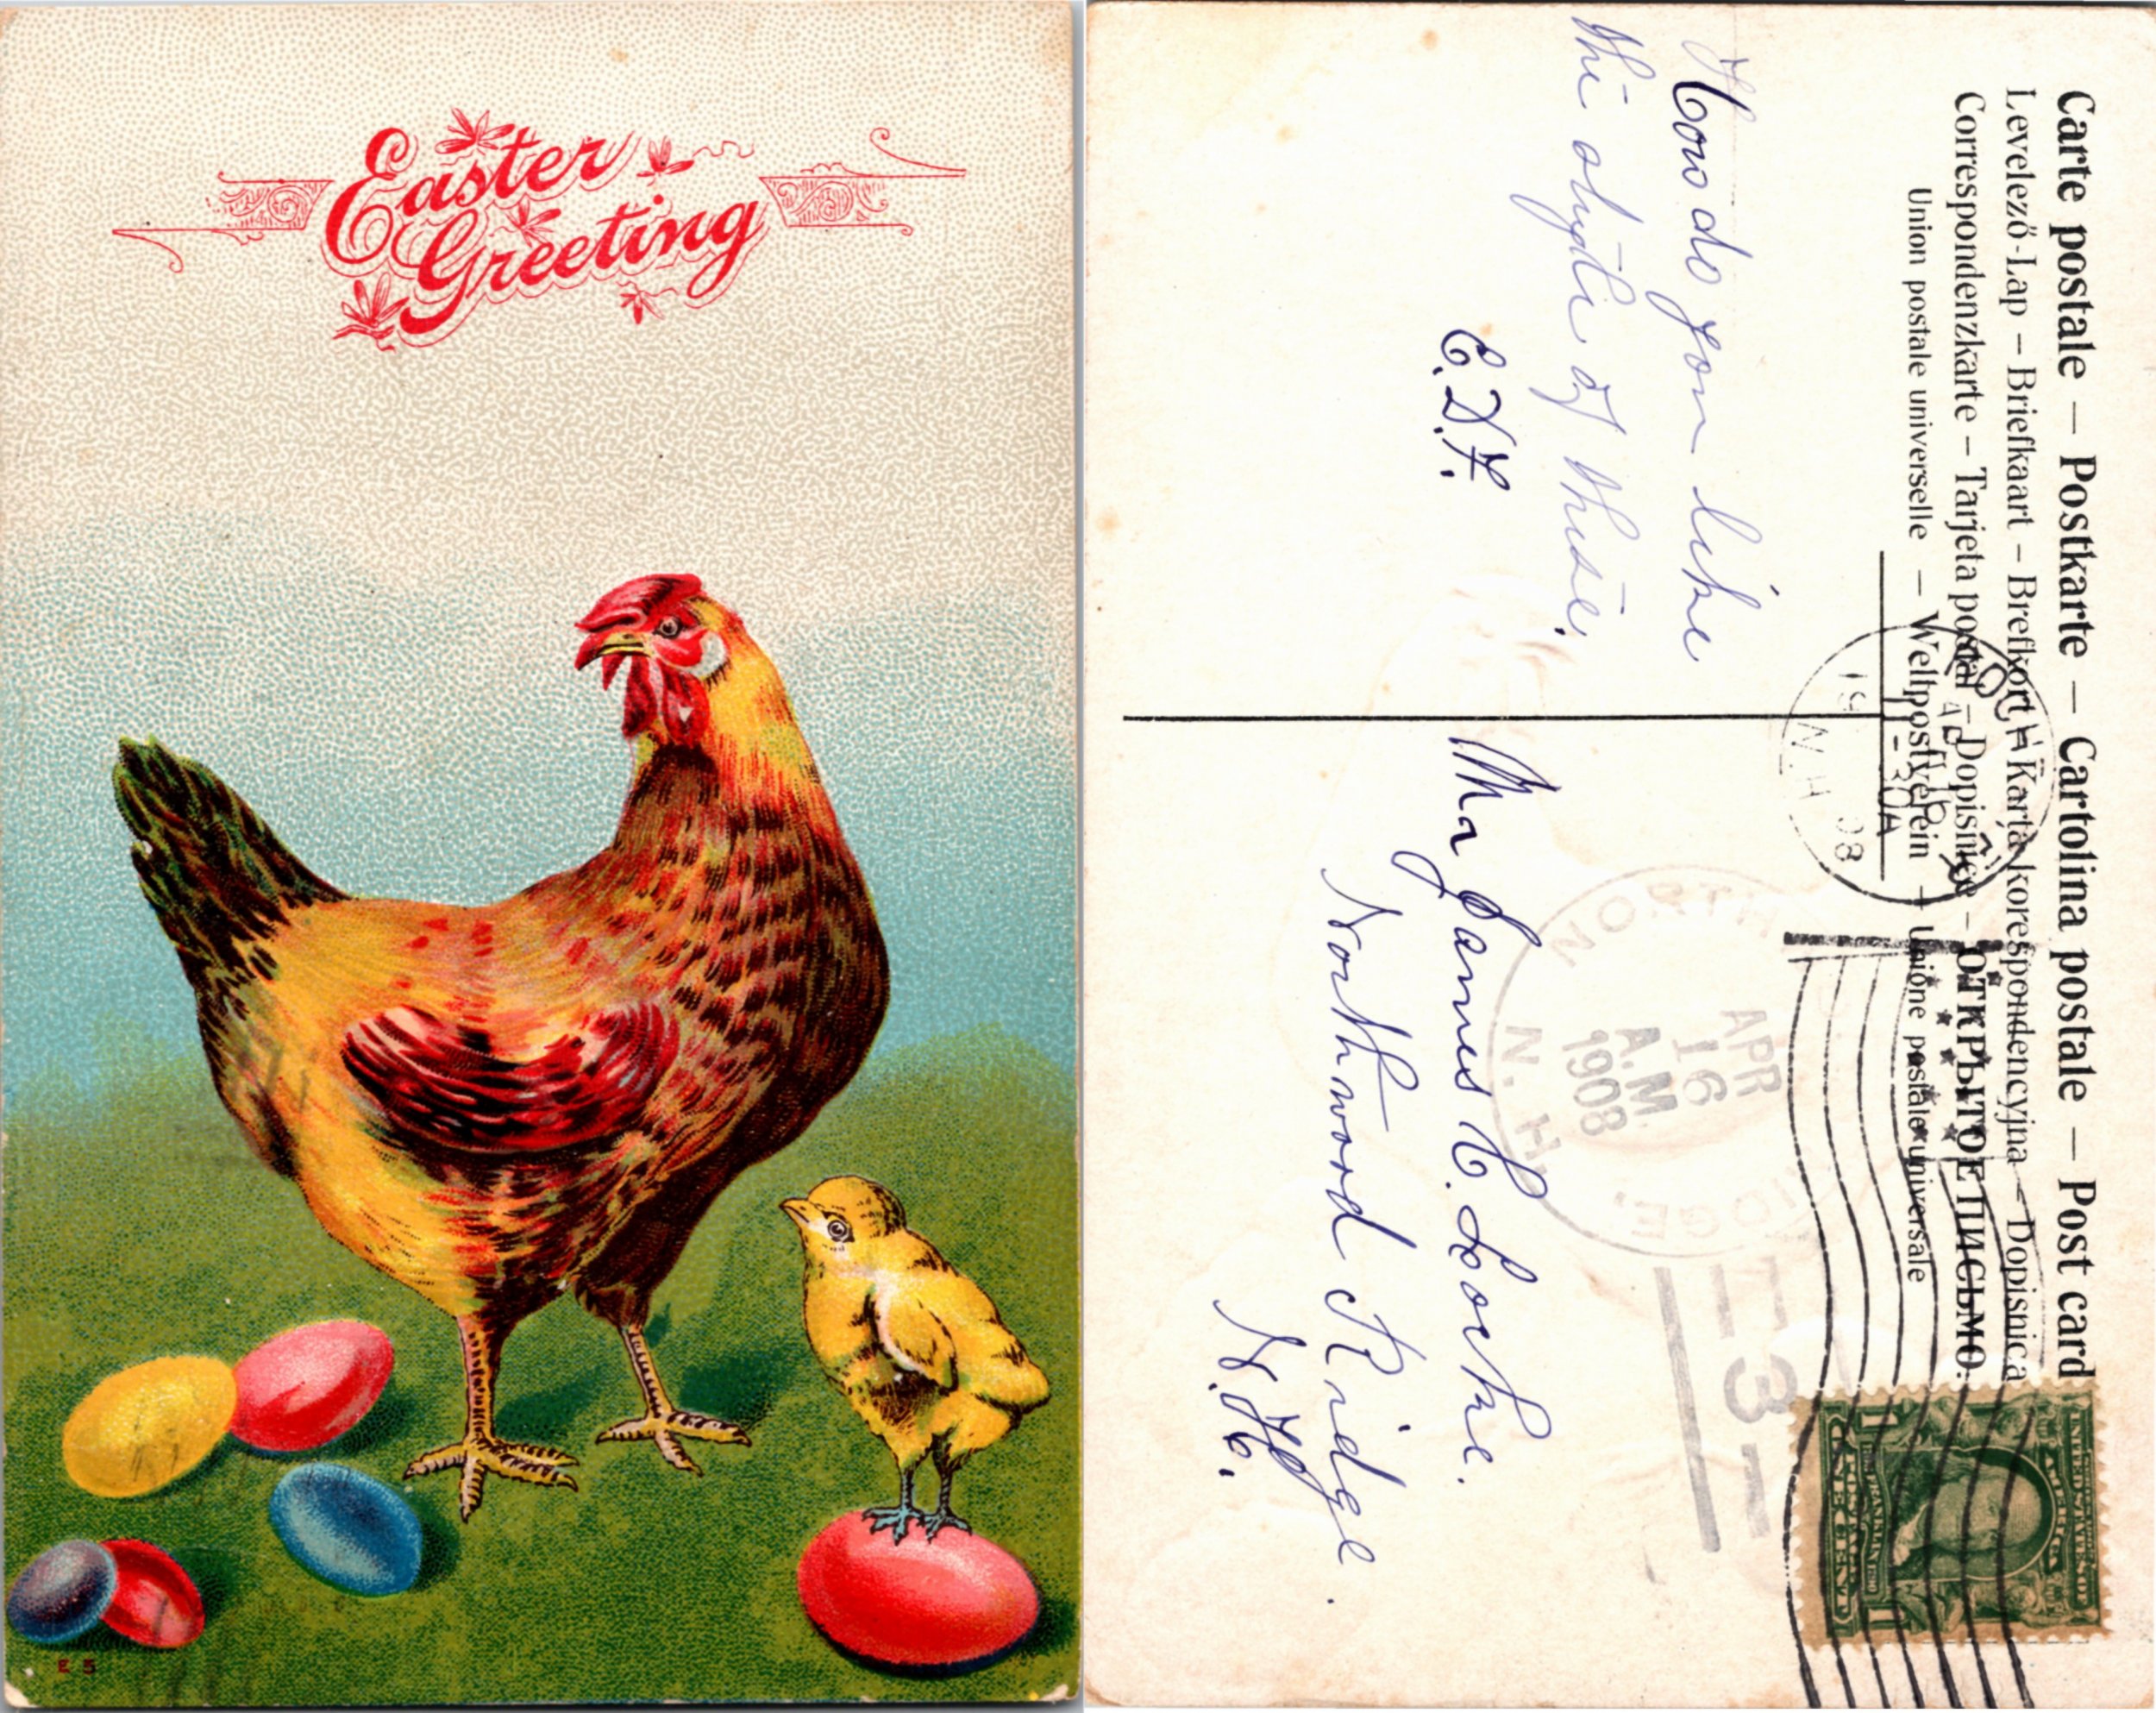 Easter
Greeting
E 5
Carte postale — Postkarte — Cartolina postale — Post card
Levelező-Lap – Briefkaart – Brefkort – Karta korespondencyjna – Dopisnica
Correspondenzkarte – Tarjeta postal – Dopisnice – ОТКРЫТОЕ ПИСЬМО.
Union postale universelle — Weltpostverein — Unione postale universale
How do you like
the style of these.
C.D.H.
Mr James C. Locke.
Northwood Ridge.
N.H.
APR 16
11-30A
N.H.
NORTHWOOD RIDGE,
APR
16
A.M.
1908
N. H.
3
UNITED STATES OF
AMERICA
FRANKLIN
1 ONE CENT 1